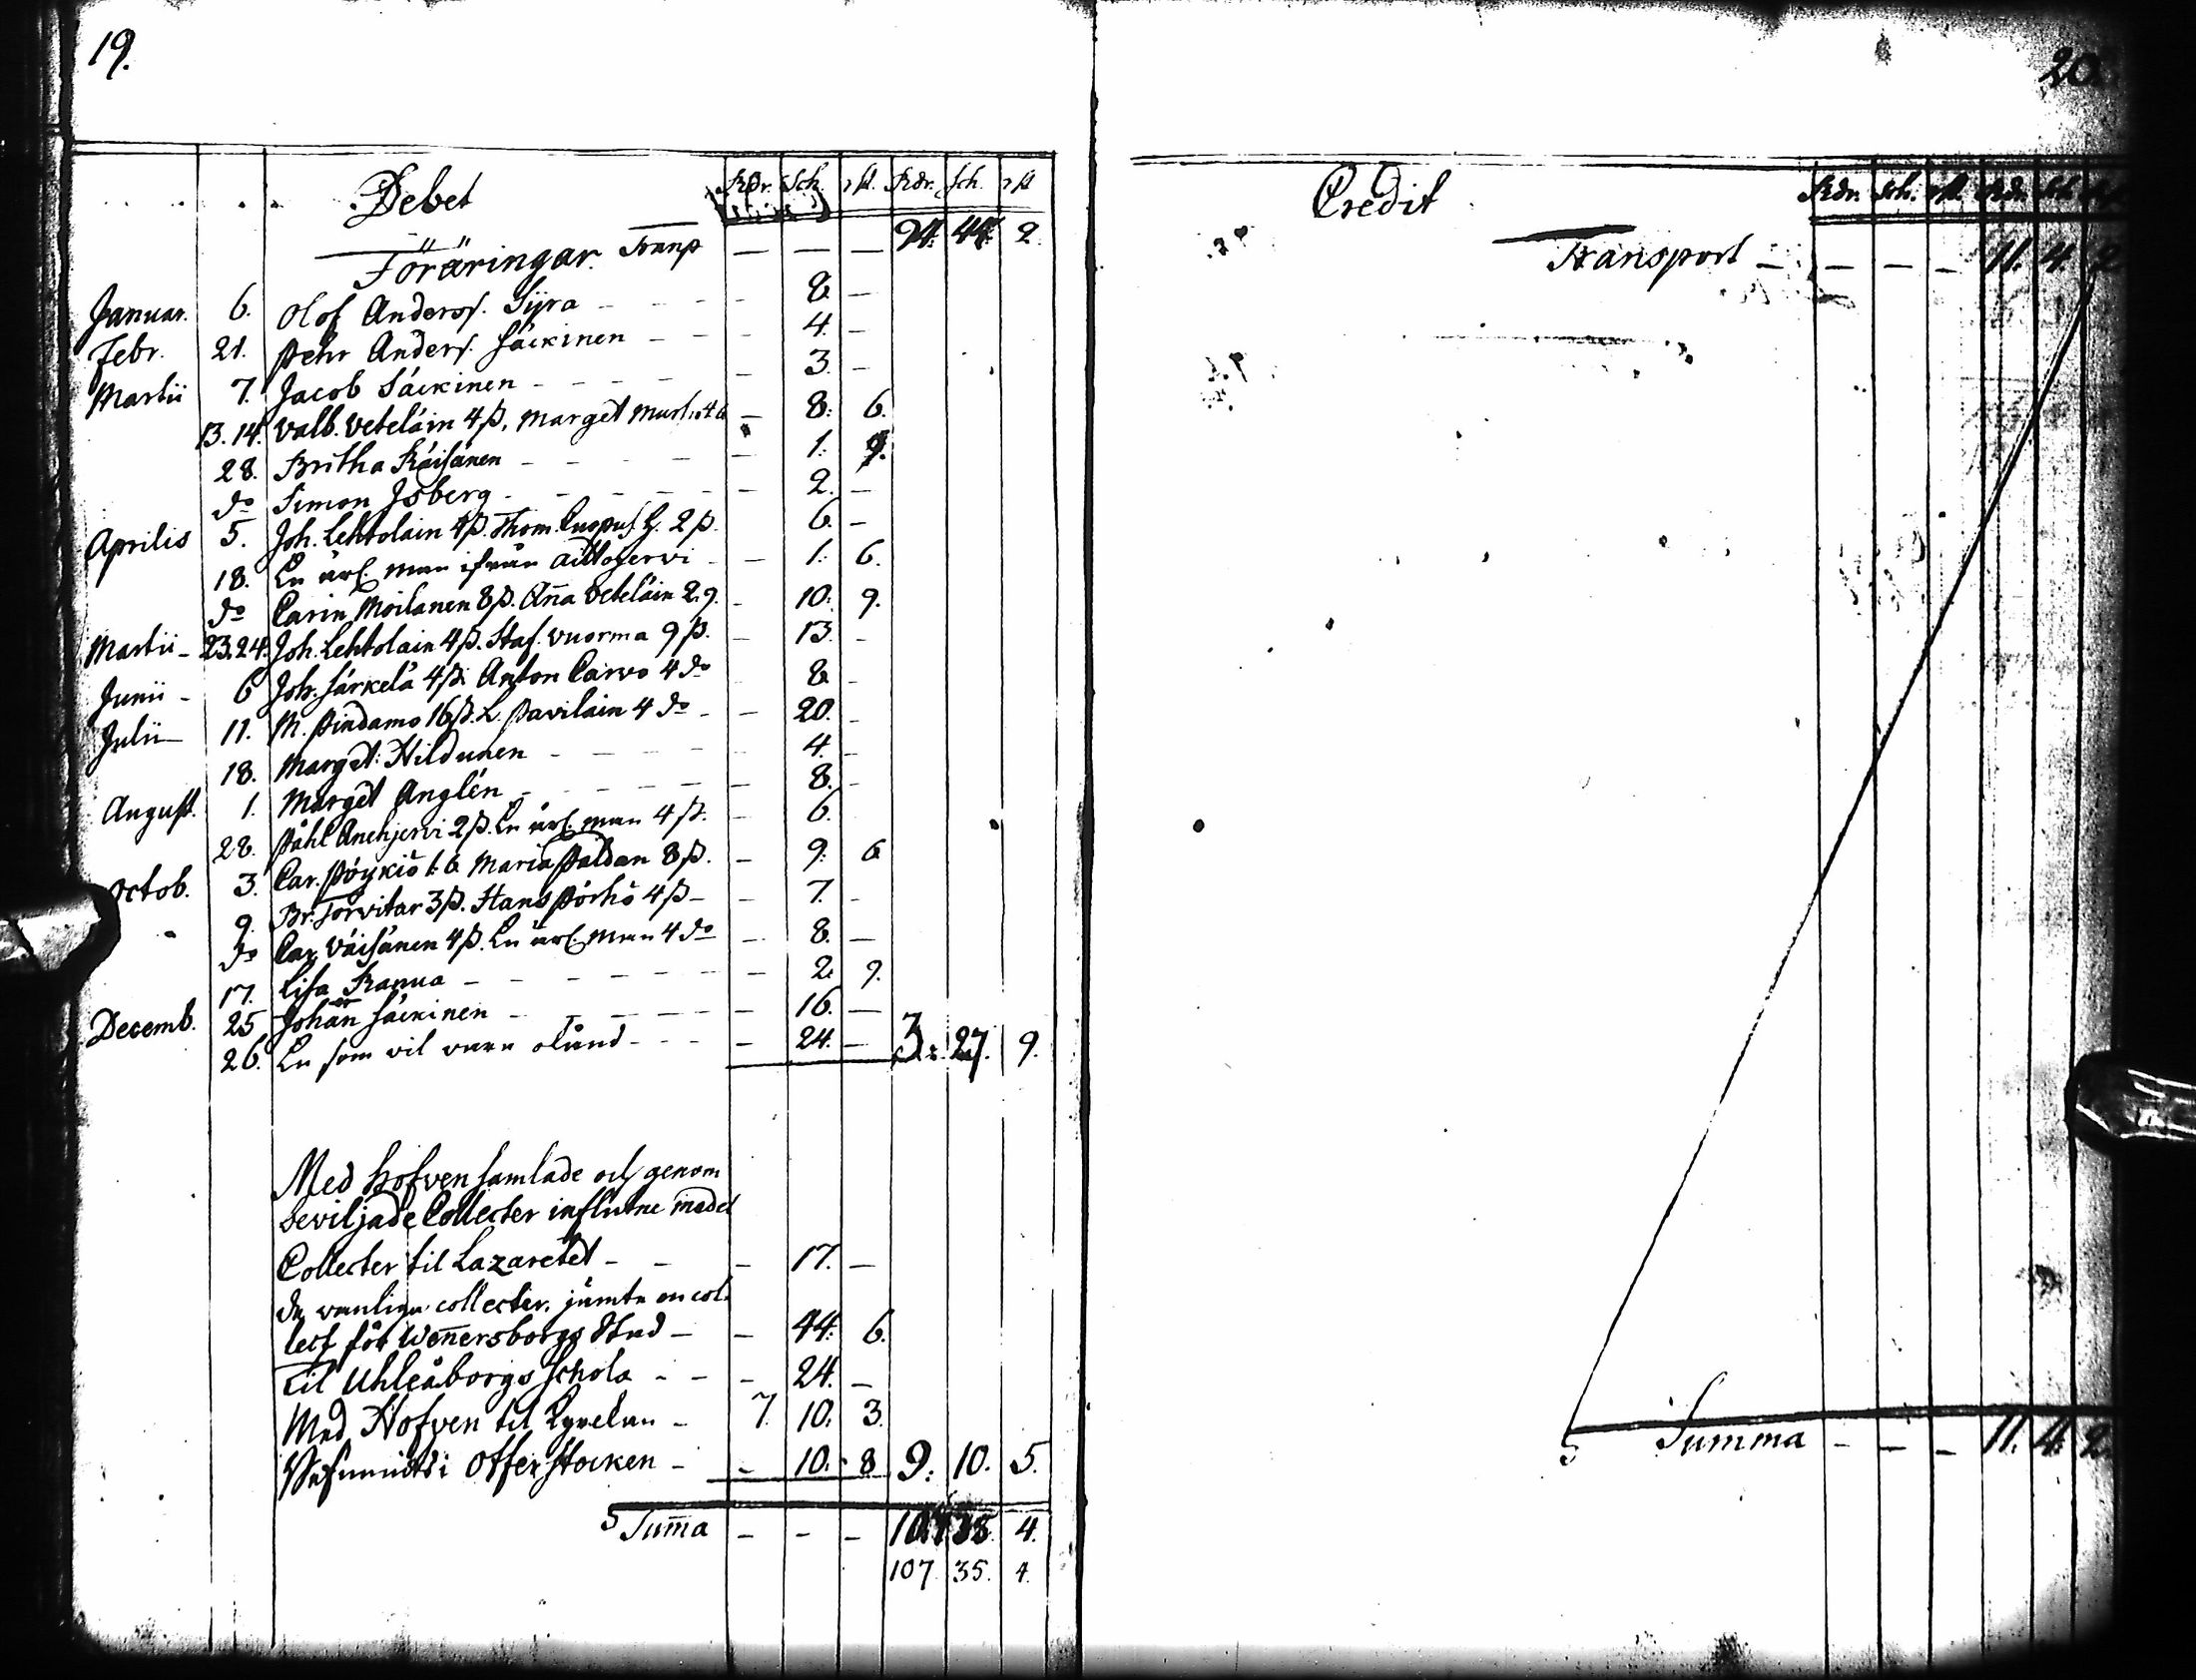 19.
Debet Rdr. Sch. rst. Rdr. Sch. rst
Föräringar. Transp — — — 94. 44. 2.
Januar. 6. Olof Anderss. Syra - - - - 8. —
Febr. 21. Pehr Anders. Säckinen - - - 4. —
Martii 7. Jacob Säckinen - - - - - 3. —
13. 14. Valb. Veteläin 4 ß, Marget - 8. 6.
28. Britha Räisänen - - - - 1. 9.
do Simon Isberg - - - - - 2. —
Aprilis 5. Joh. Lehtolain 4 ß. Thom. 2 ß. 6. —
18. En ärl. man ifrån Aittojervi - — 1. 6.
do Carin Moilanen 8 ß. Anna Veteläin 2. 9. - 10. 9.
Martii - 23. 24. Joh. Lehtolain 4 ß. Staf. Vuorma 9 ß. — 13. -
Junii - 6 Joh. Särkelä 4 ß. Anton Carvo 4 do 8. -
Julii — 11. M. Pindamo 16 ß. L. Pavilain 4 do - — 20. -
18. Marget. Hildunen - - - - 4. -
August. 1. Marget Anglén - - - - - — 8. -
28. Påhl 2 ß. En ärl. man 4 ß. — 6.
Octob. 3. Car. Pöykiö 1. 6 Maria Paldan 8 ß. — 9. 6
9. Br. Torvitar 3 ß. Hans Pörhö 4 ß - — 7. -
do Car. Väisänen 4 ß. En ärl. man 4 do — 8. —
17. Lisa Ranua - - - - - - — 2. 9.
Decemb. 25 Johan Säckinen - - - - - — 16. —
26. En som vil vara okänd - - - — 24. — 3. 27. 9.
Med Hofven samlade och genom
beviljade Collecter influtne medel
Collecter til Lazaretet - - — 17. —
De vanliga collecter, jämte en col-
lect för Wenersborgs Stad - — 44. 6.
Til Uhleåborgs Schola - - - 24. —
Med Hofven til Kyrckan - 7. 10. 3.
i Offerstocken - - 10. 8 9. 10. 5.
Summa - - - 107 35. 4.
107 35. 4.
20.
Credit Rdr. Sch. rst. Rdr. Sch.
Transport - - — — - 11. 4. 2
Summa - — - 11. 4. 2